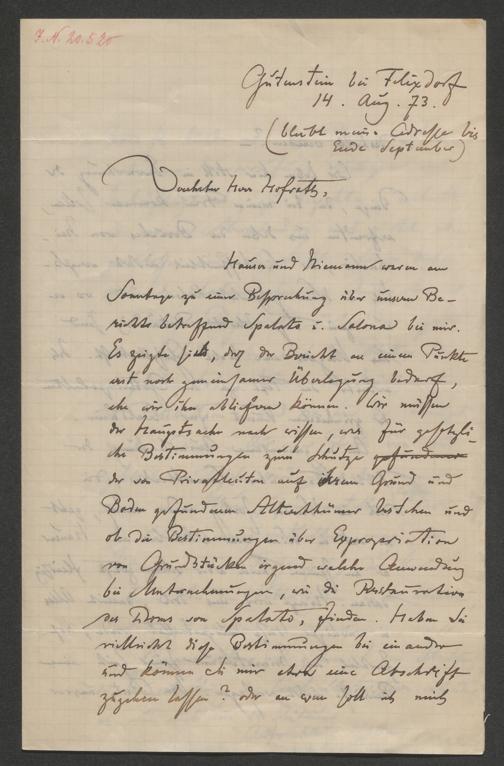 J. N. 20.520
Gutenstein bei Felixdorf
14. Aug. 73.
(bleibt meine Adresse bis
Ende September)
Verehrter Herr Hofrath,
Hauser und Niemann waren am
Sonntage zu einer Besprechung über unseren Be-
richte betreffend Spalato u. Salona bei mir.
Es zeigte sich, daß der Bericht an einem Punkte
erst noch gemeinsamer Überlegung bedarf,
ehe wir ihn abliefern können. Wir müssen
der Hauptsache nach wissen, was für gesetzli-
che Bestimmungen zum Schutze gefundener
der von Privatleuten auf ihrem Grund und
Boden gefundenen Alterthümer bestehen und
ob die Bestimmungen über Expropriation
von Grundstücken irgend welche Anwendung
bei Unternehmungen, wie die Restauration
des Doms von Spalato, finden. Haben Sie
vielleicht diese Bestimmungen bei einander
und können Sie mir etwa eine Abschrift
zugehen lassen? oder an wen soll ich mich